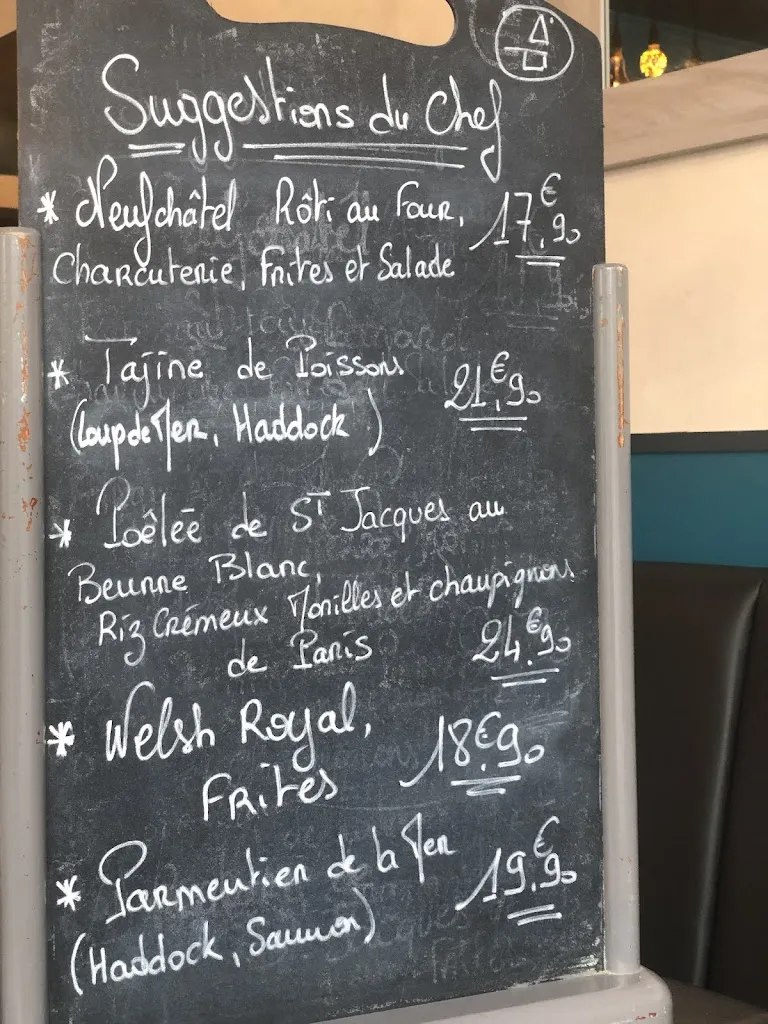 Suggestions du Chef
* Neufchâtel Rôti au Four, 17,€90
Charcuterie, Frites et Salade
* Tajine de Poissons 21,€90
(Loup de Mer, Haddock)
* Poêlée de St Jacques au
Beurre Blanc,
Riz Crémeux Morilles et champignons
de Paris 24,€90
* Welsh Royal, 18,€90
Frites
* Parmentier de la Mer 19,€90
(Haddock, Saumon)